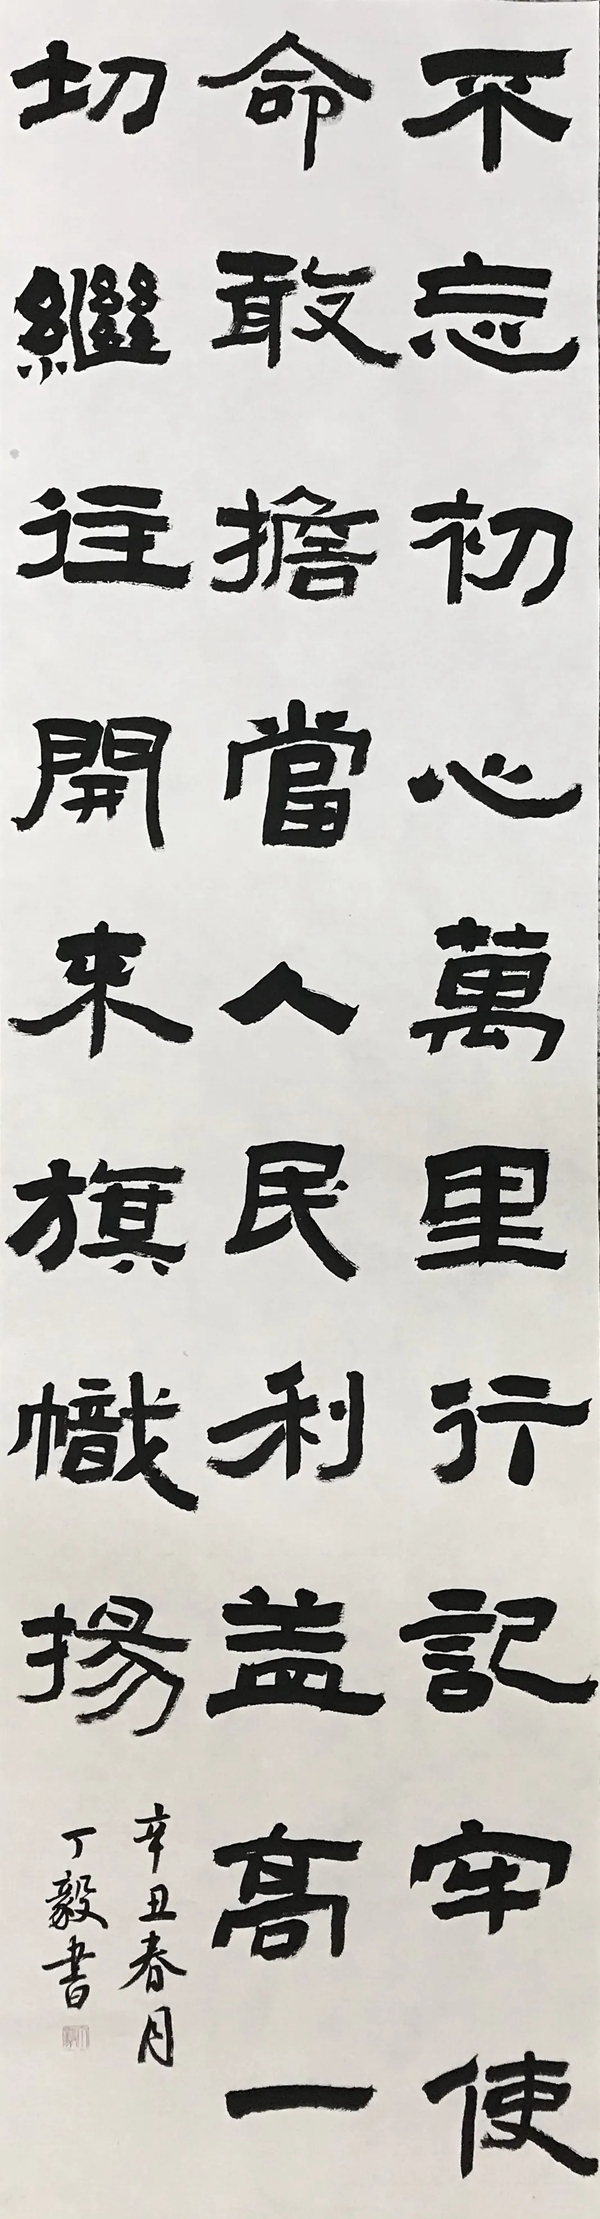 不忘初心萬里行記牢使
命敢擔當人民利益高一
切繼往開來旗幟揚
辛丑春月
丁毅書